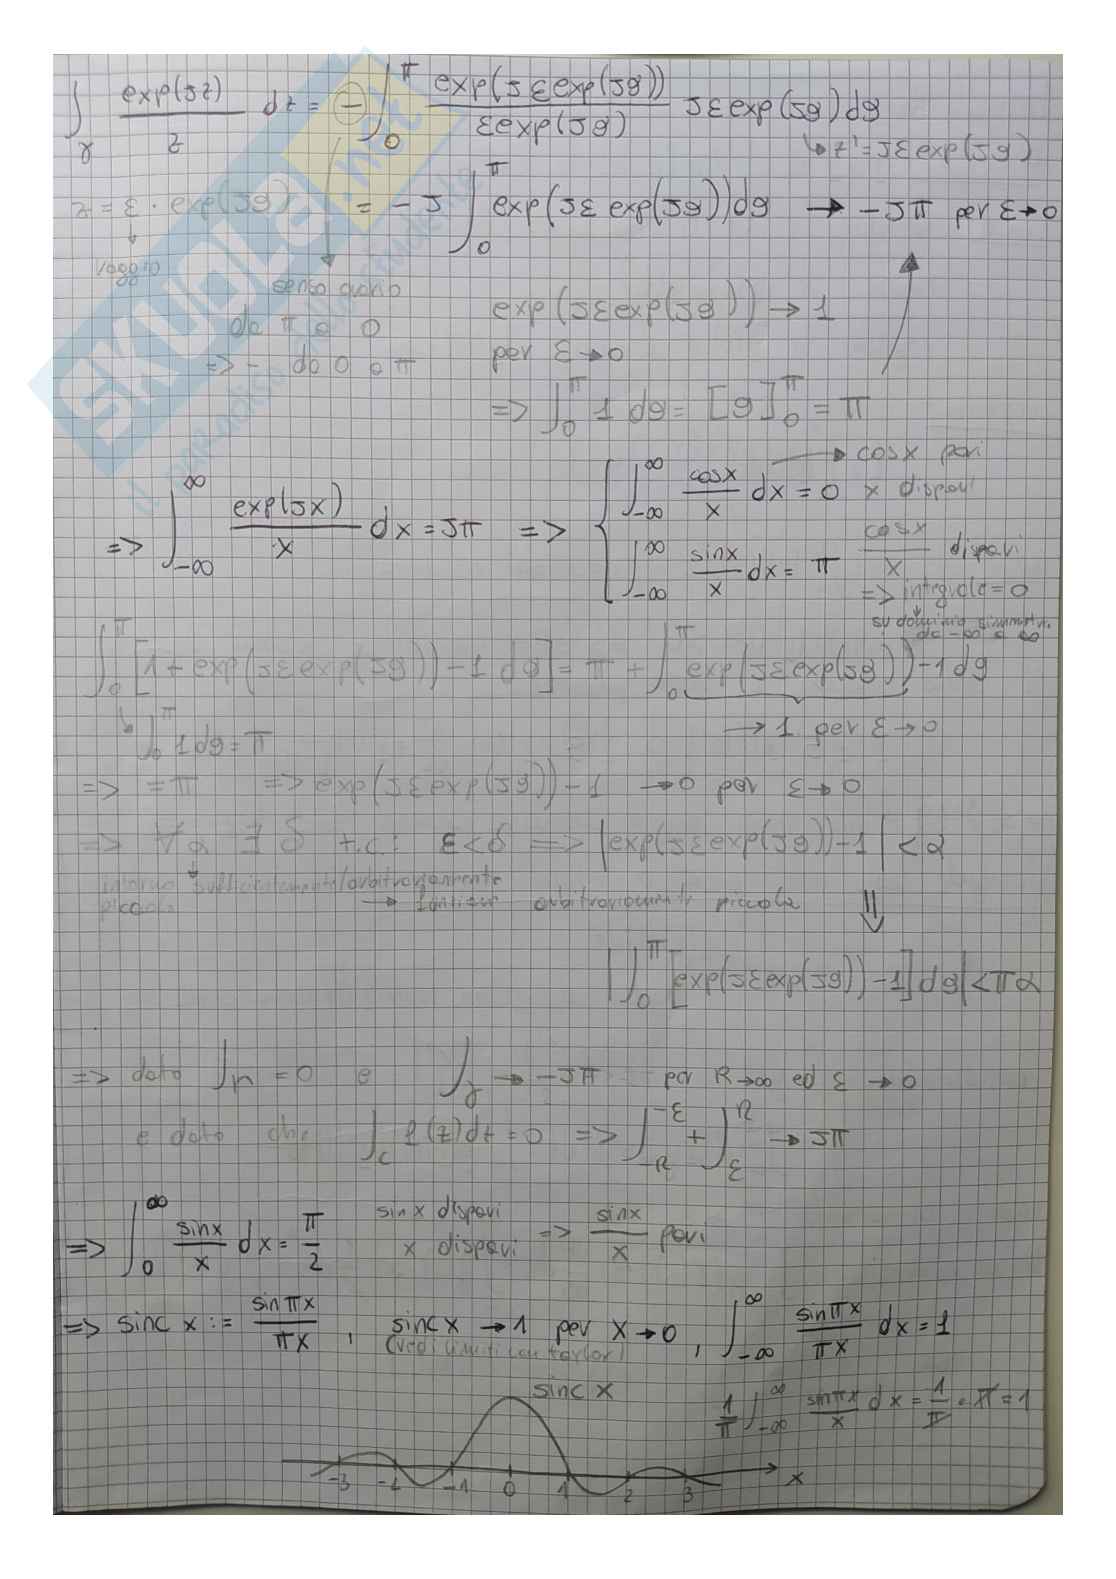 ∫_γ exp(Jz)/z dz = (−) ∫_0^π exp(Jεexp(Jϑ))/εexp(Jϑ) Jεexp(Jϑ)dϑ
↳ z' = Jεexp(Jϑ)
z = ε · exp(Jϑ) = −J ∫_0^π exp(Jε exp(Jϑ))dϑ → −Jπ per ε→0
↓ raggio
senso orario
da π a 0
=> − da 0 a π
exp(Jεexp(Jϑ)) → 1
per ε→0
=> ∫_0^π 1 dϑ = [ϑ]_0^π = π
=> ∫_{-∞}^{∞} exp(Jx)/x dx = Jπ => { ∫_{-∞}^{∞} cosx/x dx = 0 → cosx pari
x dispari
∫_{-∞}^{∞} sinx/x dx = π cosx/x dispari
=> integrale = 0
su dominio simmetr.
da −∞ a ∞
∫_0^π [1 + exp(Jεexp(Jϑ)) − 1 dϑ] = π + ∫_0^π exp(Jεexp(Jϑ)) − 1 dϑ
↳ ∫_0^π 1 dϑ = π → 1 per ε→0
=> = π => exp(Jεexp(Jϑ)) − 1 → 0 per ε→0
=> ∀α ∃ δ t.c.: ε<δ => |exp(Jεexp(Jϑ)) − 1| < α
intorno sufficientemente/arbitrariamente
piccolo → arbitrariamente piccola ⇓
|∫_0^π [exp(Jεexp(Jϑ)) − 1] dϑ| < πα
=> dato ∫_Γ = 0 e ∫_γ → −Jπ per R→∞ ed ε→0
e dato che ∫_C f(z)dz = 0 => ∫_{-R}^{-ε} + ∫_ε^R → Jπ
=> ∫_0^∞ sinx/x dx = π/2 sinx dispari
x dispari => sinx/x pari
=> sinc x := sinπx/πx , sinc x → 1 per x→0 , ∫_{-∞}^{∞} sinπx/πx dx = 1
(vedi limiti con taylor)
sinc x
1/π ∫_{-∞}^{∞} sinπx/x dx = 1/π · π = 1
-3 -2 -1 0 1 2 3 x
SKUOLA.net
il paradiso dello studente